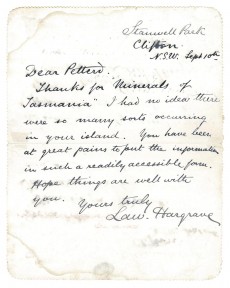 Stanwell Park
Clifton
N.S.W. Sept 10th
Dear Petterd.
Thanks for "Minerals of
Tasmania" I had no idea there
were so many sorts occurring
in your island. You have been
at great pains to put the information
in such a readily accessible form.
Hope things are well with
you. Yours truly
Law. Hargrave